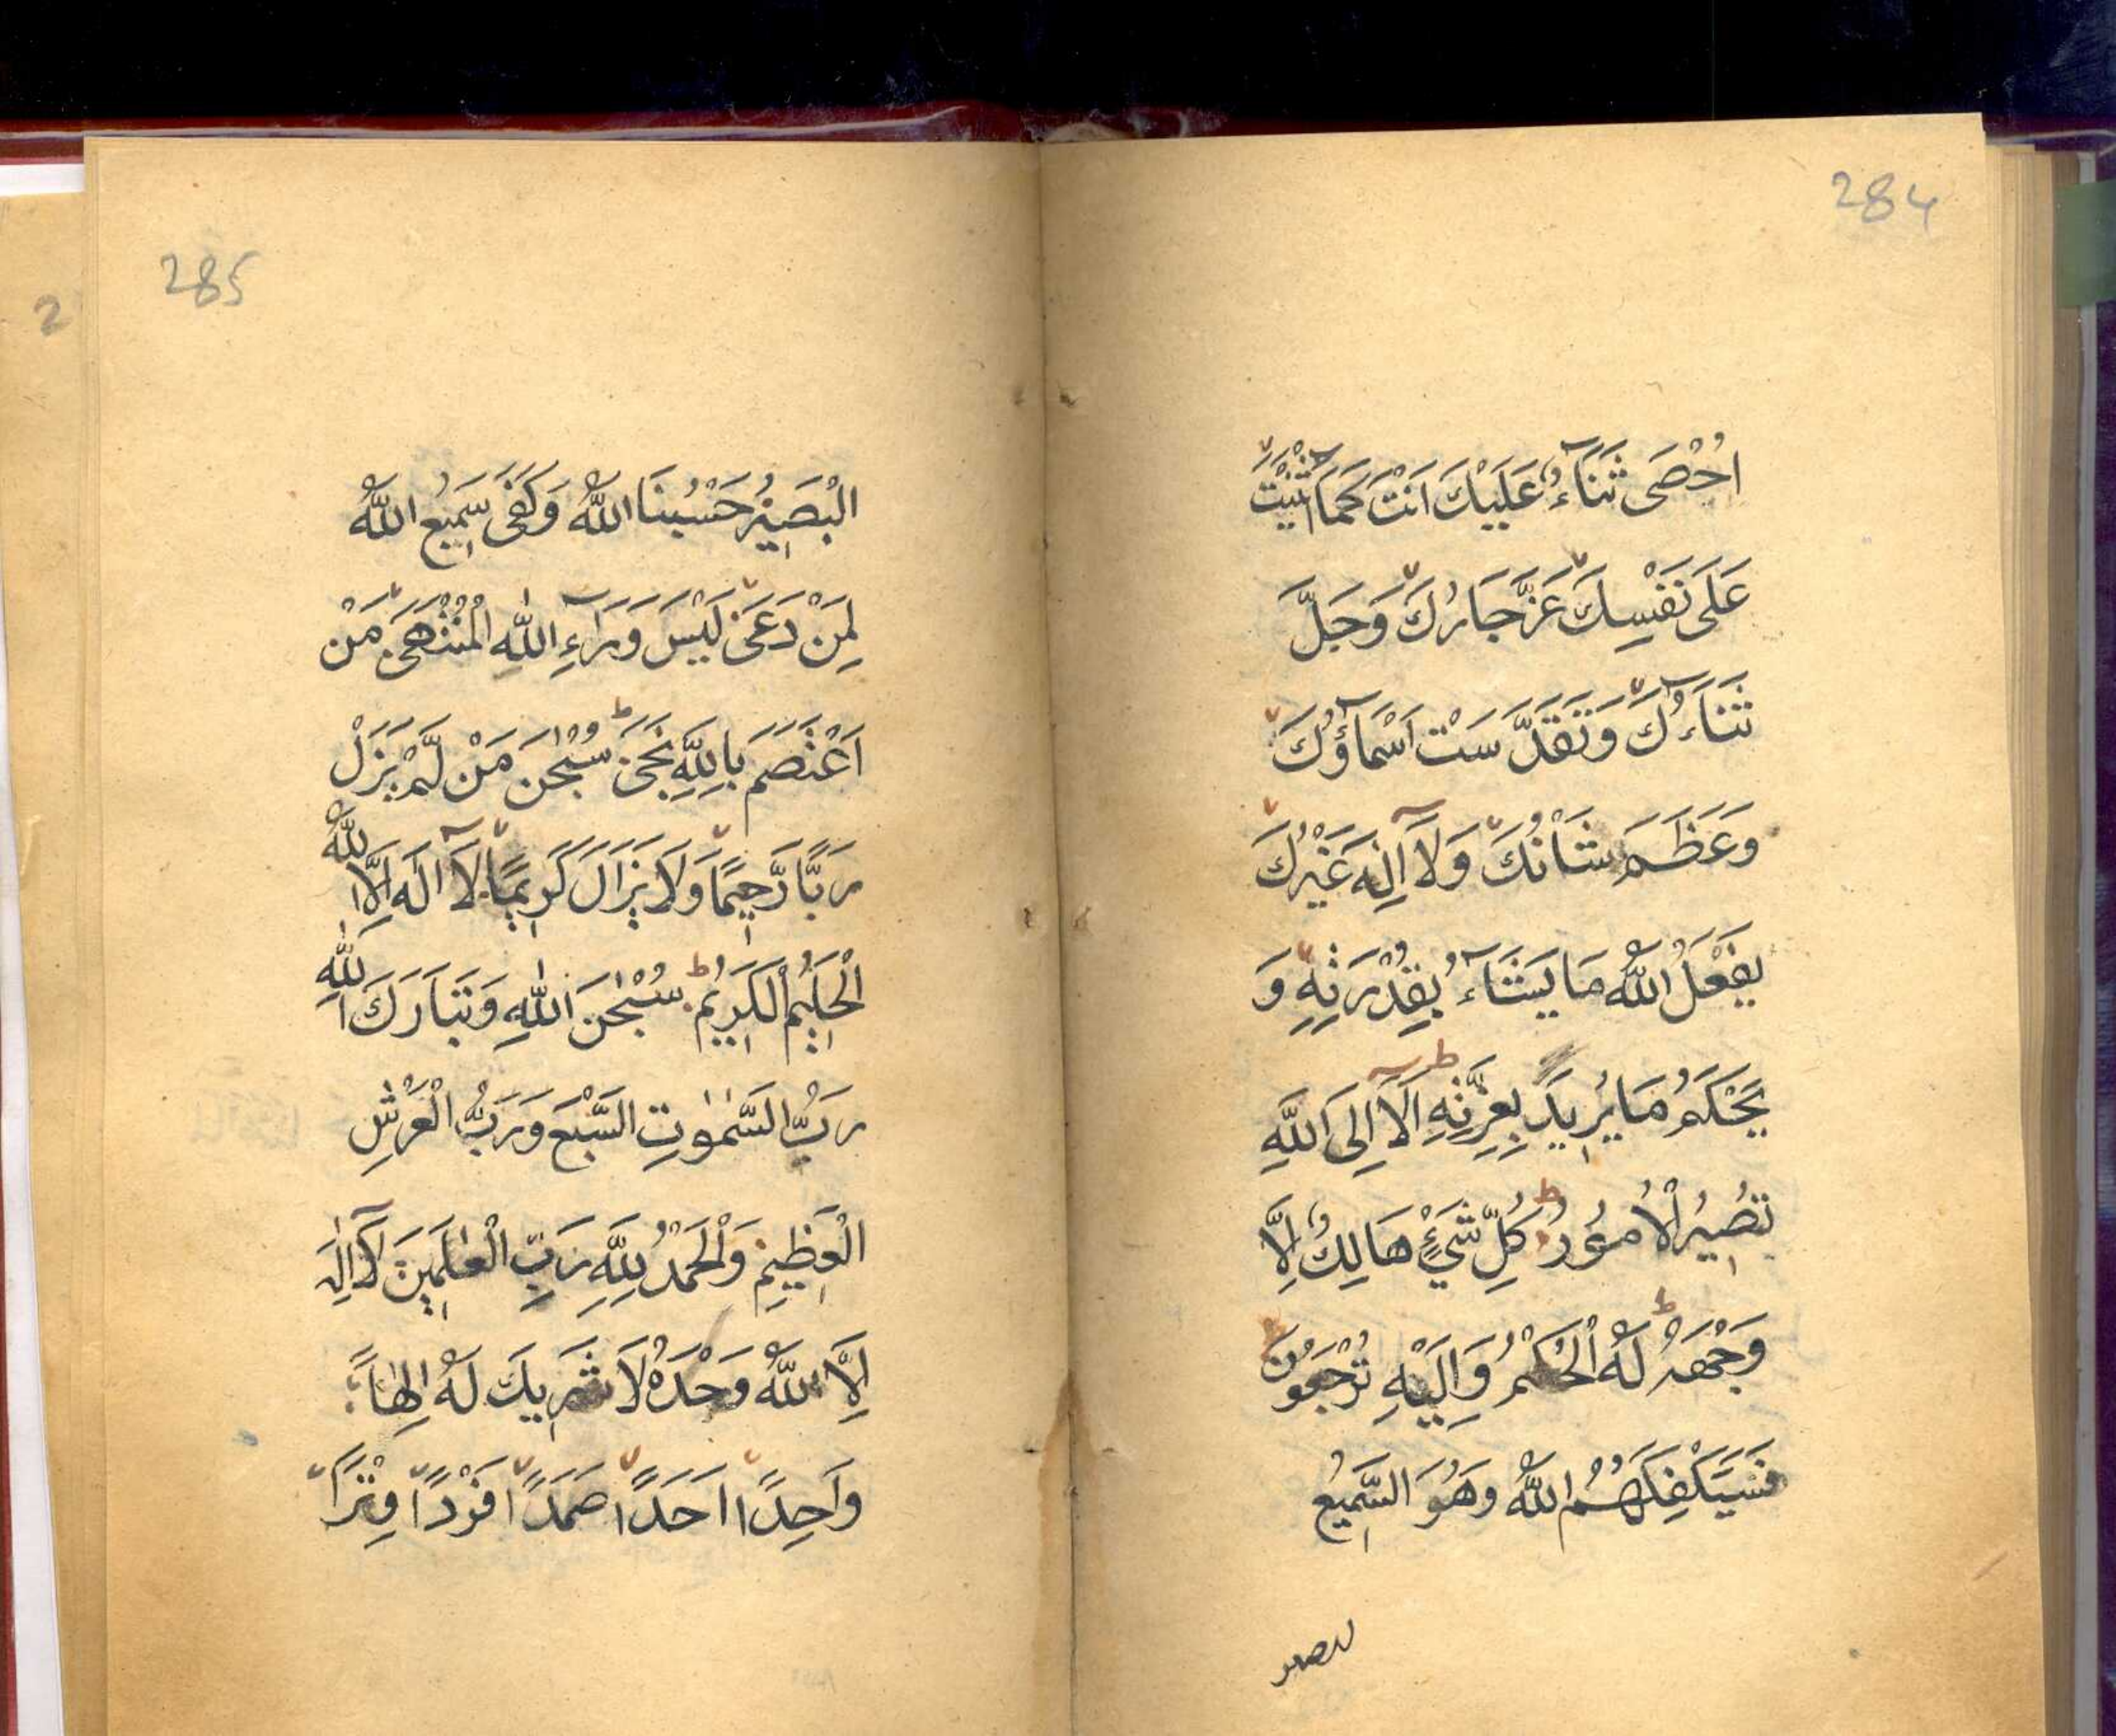 284
اُحْصَى ثَنَآءً عَلَيْكَ اَنْتَ كَمَا اَثْنَيْتَ
عَلَى نَفْسِكَ عَزَّ جَارُكَ وَجَلَّ
ثَنَآءُكَ وَتَقَدَّسَتْ اَسْمَآؤُكَ
وَعَظَمَ شَانُكَ وَلَآ اِلٰهَ غَيْرُكَ
يَفْعَلُ اللّٰهُ مَا يَشَآءُ بِقُدْرَتِهٖ وَ
يَحْكَمُ مَا يُرِيدُ بِعِزَّتِهِ اَلَا اِلَى اللّٰهِ
تَصِيْرُ الْاُمُوْرُ كُلِّ شَيْءٍ هَالِكٌ اِلَّا
وَجْهَهُ لَهُ الْحُكْمُ وَاِلَيْهِ تُرْجَعُوْنَ
فَسَيَكْفِكَهُمُ اللّٰهُ وَهُوَ السَّمِيْعُ
البصير
285
الْبَصِيْرُ حَسْبُنَا اللّٰهُ وَكَفَى سَمِيْعُ اللّٰهُ
لِمَنْ دَعَى لَيْسَ وَرَآءِ اللّٰهِ الْمُنْتَهَى مَنْ
اَعْتَصَمَ بِاللّٰهِ نَجَى سُبْحٰنَ مَنْ لَّمْ يَزَلْ
رَبًّا رَّحِيْمًا وَلَا يَزَالَ كَرِيْمًا لَآ اِلٰهَ اِلَّا اللّٰهُ
الْحَلِيْمُ الْكَرِيْمُ سُبْحٰنَ اللّٰهِ وَتَبَارَكَ اللّٰهِ
رَبُّ السَّمٰوٰتِ السَّبْعَ وَرَبُّ الْعَرْشِ
الْعَظِيْمِ وَالْحَمْدُ لِلّٰهِ رَبِّ الْعٰلَمِيْنَ لَآ اِلٰهَ
اِلَّا اللّٰهُ وَحْدَهُ لَا شَرِيكَ لَهُ اِلٰهًا
وَاحِدًا اَحَدًا صَمَدًا فَرْدًا وِتْرًا